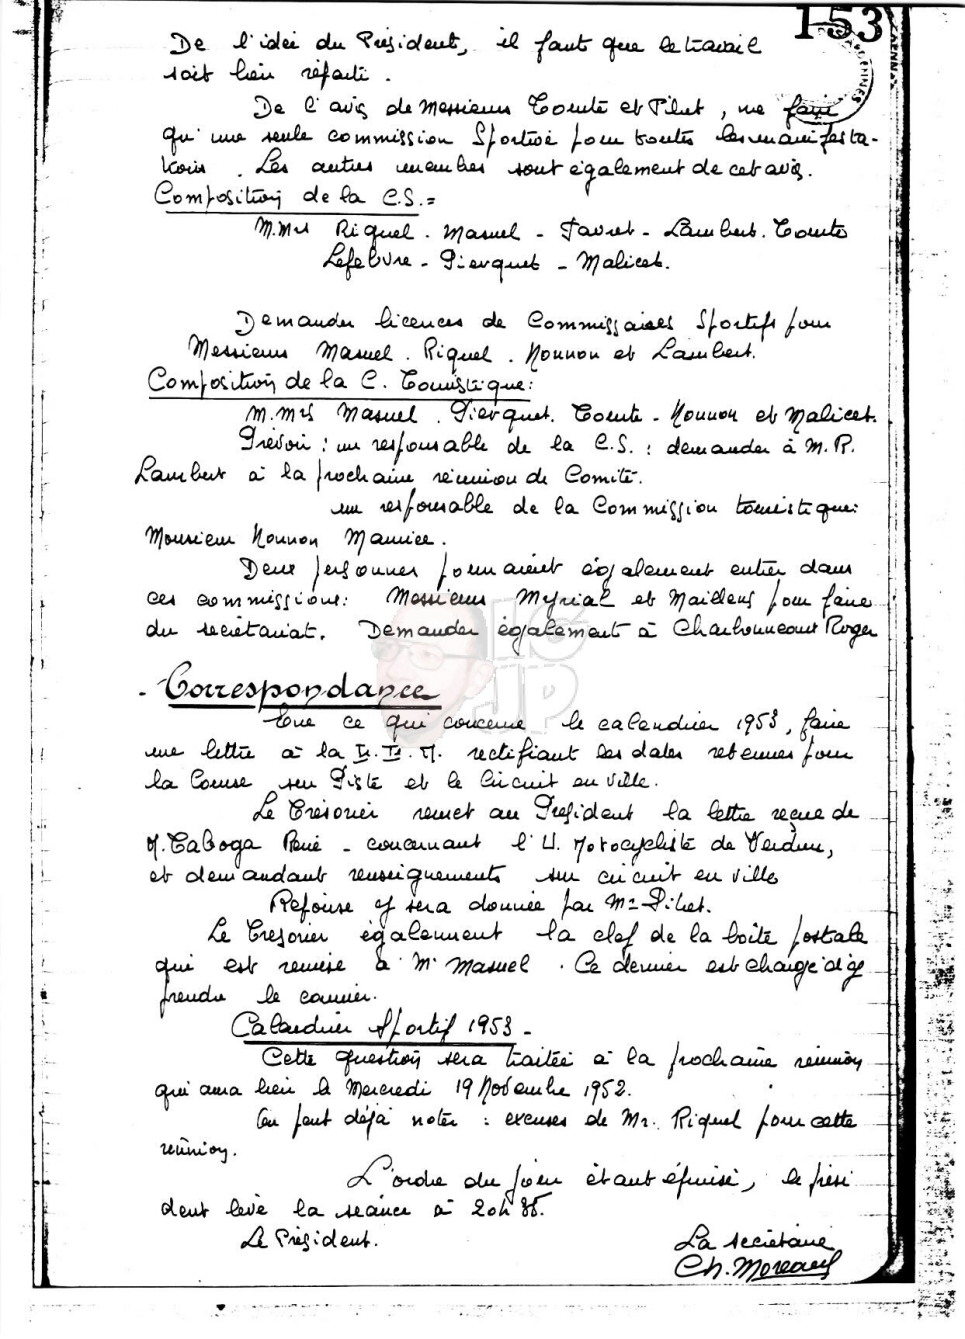 153
De l'idée du Président, il faut que le travail
soit bien réparti.
De l'avis de Messieurs Comte et Pilut, ne faire
qu'une seule commission Sportive pour toutes les manifesta-
tions. Les autres membres sont également de cet avis.
Composition de la C.S. =
M.Mrs Riquel - Masuel - Favret - Lambert. Comte
Lefebvre - Pierquet - Malicet.
Demander licences de Commissaires Sportifs pour
Messieurs Masuel. Riquel. Nonnon et Lambert.
Composition de la C. Touristique:
M.Mrs Masuel. Pierquet. Comte - Nonnon et Malicet.
Prévoir : un responsable de la C.S. : demander à M. R.
Lambert à la prochaine réunion de Comité.
un responsable de la Commission touristique:
Monsieur Nonnon Maurice.
Deux personnes pourraient également entrer dans
ces commissions: Messieurs Myrial et Maillens pour faire
du secrétariat. Demander également à Charbonneaux Roger
- Correspondance
En ce qui concerne le calendrier 1953, faire
une lettre à la F.F.M. rectifiant les dates retenues pour
la Course sur Piste et le Circuit en ville.
Le Trésorier remet au Président la lettre reçue de
M. Caboga René - concernant l'U. Motocycliste de Verdun,
et demandant renseignements sur circuit en ville
Réponse y sera donnée par Mr Pilut.
Le Trésorier également la clef de la boîte postale
qui est remise à Mr Masuel. Ce dernier est chargé d'y
prendre le courrier.
Calendrier Sportif 1953 -
Cette question sera traitée à la prochaine réunion
qui aura lieu le Mercredi 19 Novembre 1952.
On peut déjà noter : excuses de Mr. Riquel pour cette
réunion.
L'ordre du jour étant épuisé, le prési
dent lève la séance à 20h 35.
Le Président.
La secrétaire
Ch. Moreau
HG
JP